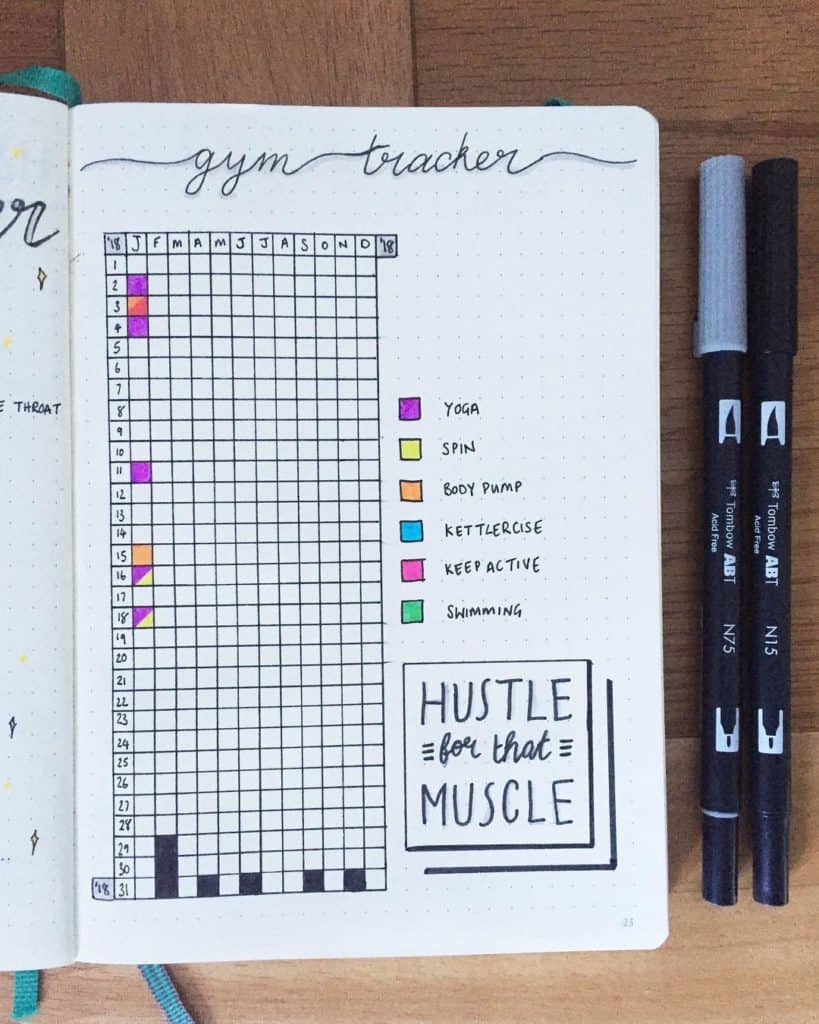 gym tracker
'18 J F M A M J J A S O N D '18
1
2
3
4
5
6
7
8
9
10
11
12
13
14
15
16
17
18
19
20
21
22
23
24
25
26
27
28
29
30
'18 31
YOGA
SPIN
BODY PUMP
KETTLERCISE
KEEP ACTIVE
SWIMMING
HUSTLE
for that
MUSCLE
25
THROAT
Tombow ABT
Acid Free
N75
Tombow ABT
Acid Free
N15